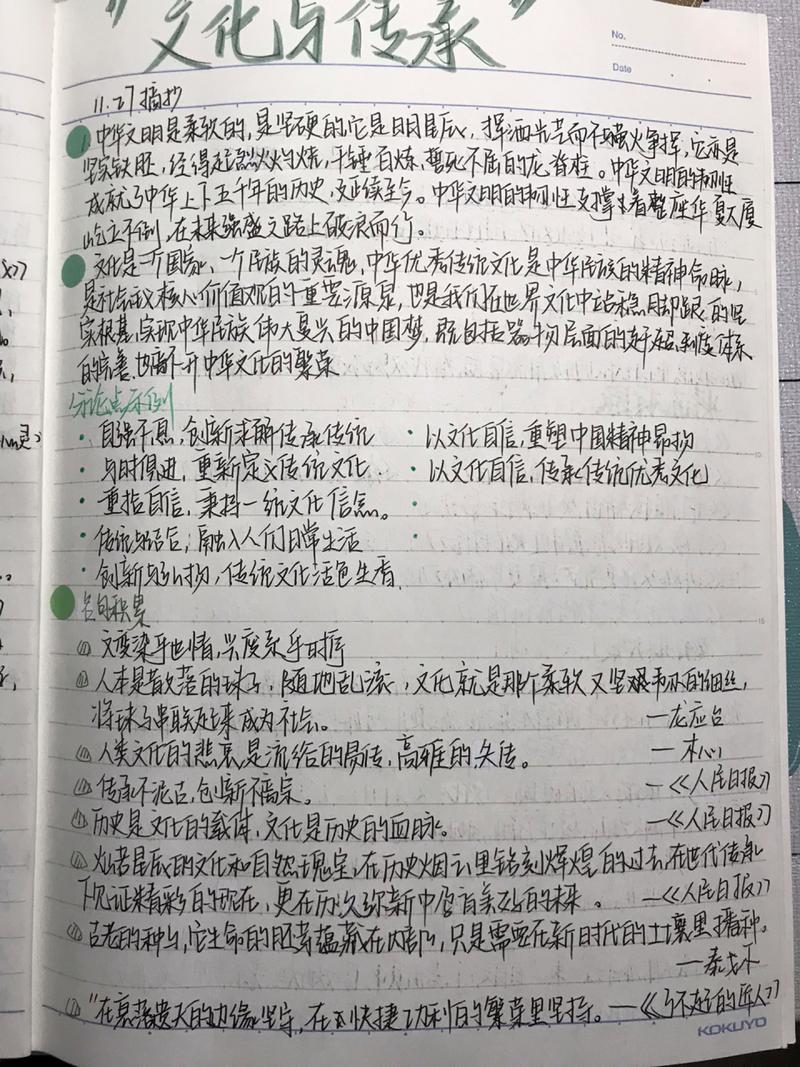 "文化与传承"
No.
Date
11.27 摘抄
1. 中华文明是柔软的,是坚硬的,它是日月星辰,挥洒光芒而不与萤火争挥,它亦是
坚实铁胚,经得起烈火灼烧,千锤百炼,誓死不屈的龙脊柱。中华文明的韧性
成就了中华上下五千年的历史,延续至今。中华文明的韧性支撑着整座华夏大厦
屹立不倒,在未来强盛之路上破浪而行。
文化是一个国家,一个民族的灵魂,中华优秀传统文化是中华民族的精神命脉,
是社会主义核心价值观的重要源泉,也是我们在世界文化中站稳脚跟的坚
实根基,实现中华民族伟大复兴的中国梦,既包括器物层面的 制度体系
的完善,也离不开中华文化的繁荣
分论点示例
· 自强不息,创新求解传承传统
· 以文化自信,重塑中国精神昂扬
· 与时俱进,重新定义传统文化
· 以文化自信,传承传统优秀文化
· 重拾自信,秉持一统文化信念。
· 传统与结合,融入人们日常生活
· 创新与弘扬,传统文化活色生香
名句积累
文变染乎世情,兴废系乎时序
人本是散落的珠子,随地乱滚,文化就是那个柔软又坚韧的细丝,
将珠子串联起来成为社会。 —龙应台
人类文化的悲哀,是流俗的易传,高雅的失传。 —木心
传承不泥古,创新不离宗。 —《人民日报》
历史是文化的载体,文化是历史的血脉。 —《人民日报》
灿若星辰的文化和自然瑰宝,在历史烟云里铭刻辉煌的过去,在世代传承
下见证精彩的现在,更在历久弥新中孕育美好的未来。 —《人民日报》
古老的种子,它生命的胚芽蕴藏在内部,只是需要在新时代的土壤里播种。
—泰戈尔
"在衰落遗失的边缘坚守,在快捷功利的繁荣里坚持。—《了不起的匠人》
KOKUYO